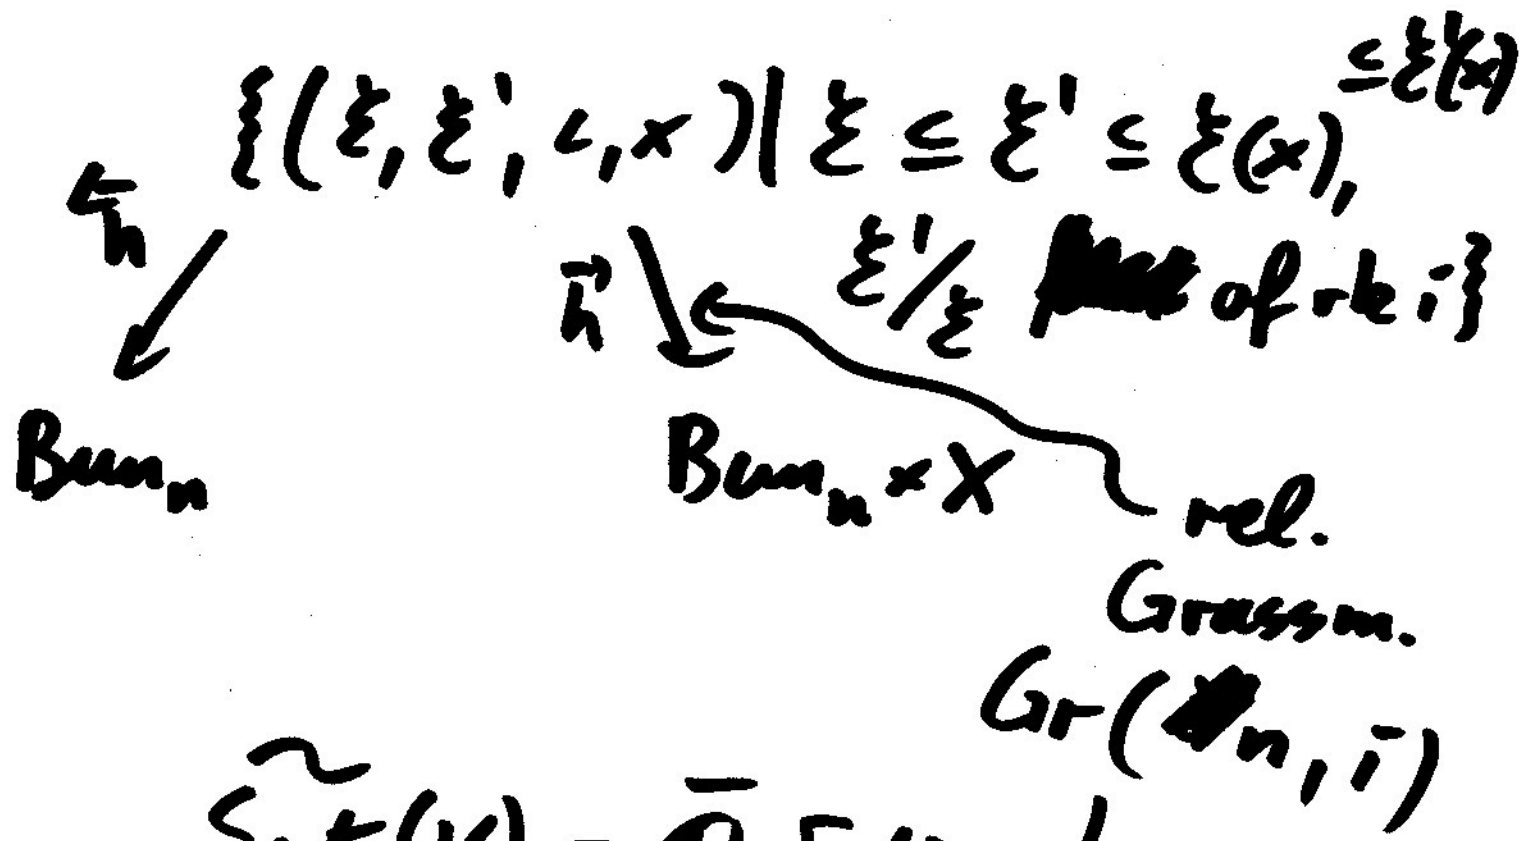 ⊆ ξ'(x)
{(ξ, ξ', ι, x) | ξ ⊆ ξ' ⊆ ξ(x),
ξ'/ξ of rk i}
←h
→h
Bunₙ
Bunₙ × X
rel.
Grassm.
Gr(n, i)